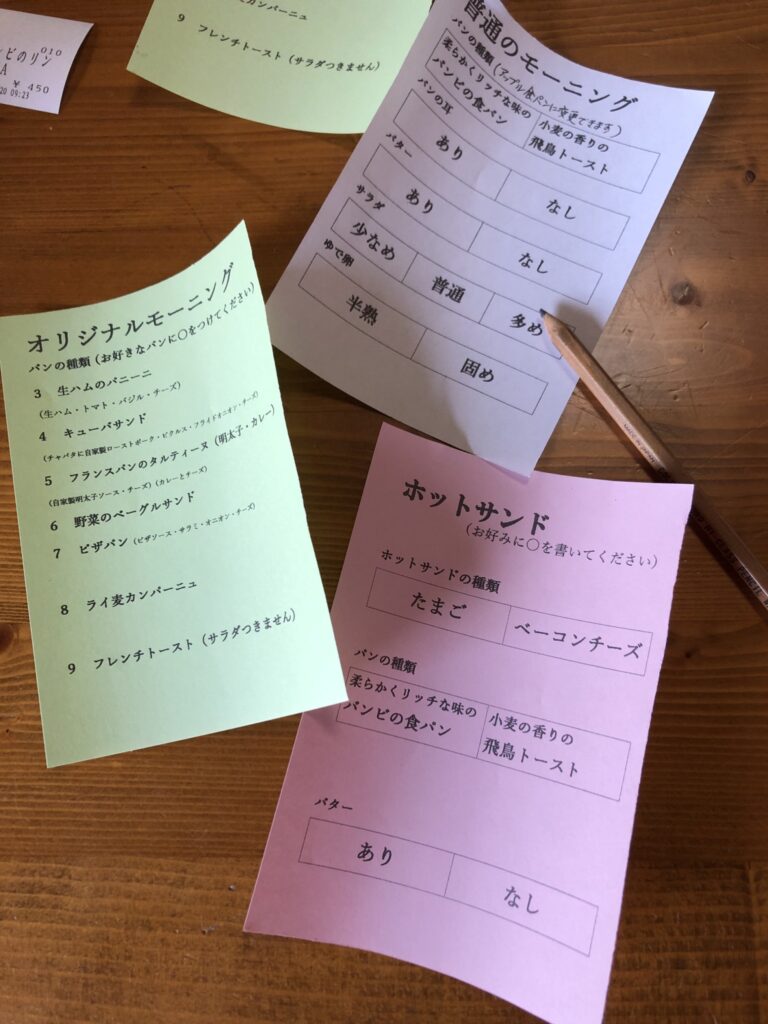 ビのリン
010
A
¥ 450
20 09:23
麦カンパーニュ
9 フレンチトースト (サラダつきません)
普通のモーニング
パンの種類 (アップル食パンに変更できます)
柔らかくリッチな味の
パンビの食パン
小麦の香りの
飛鳥トースト
パンの耳
あり
なし
バター
あり
なし
サラダ
少なめ
普通
多め
ゆで卵
半熟
固め
オリジナルモーニング
パンの種類 (お好きなパンに○をつけてください)
3 生ハムのパニーニ
(生ハム・トマト・バジル・チーズ)
4 キューバサンド
(チャバタに自家製ローストポーク・ピクルス・フライドオニオン・チーズ)
5 フランスパンのタルティーヌ (明太子・カレー)
(自家製明太子ソース・チーズ) (カレーとチーズ)
6 野菜のベーグルサンド
7 ピザパン (ピザソース・サラミ・オニオン・チーズ)
8 ライ麦カンパーニュ
9 フレンチトースト (サラダつきません)
ホットサンド
(お好みに○を書いてください)
ホットサンドの種類
たまご
ベーコンチーズ
パンの種類
柔らかくリッチな味の
パンビの食パン
小麦の香りの
飛鳥トースト
バター
あり
なし